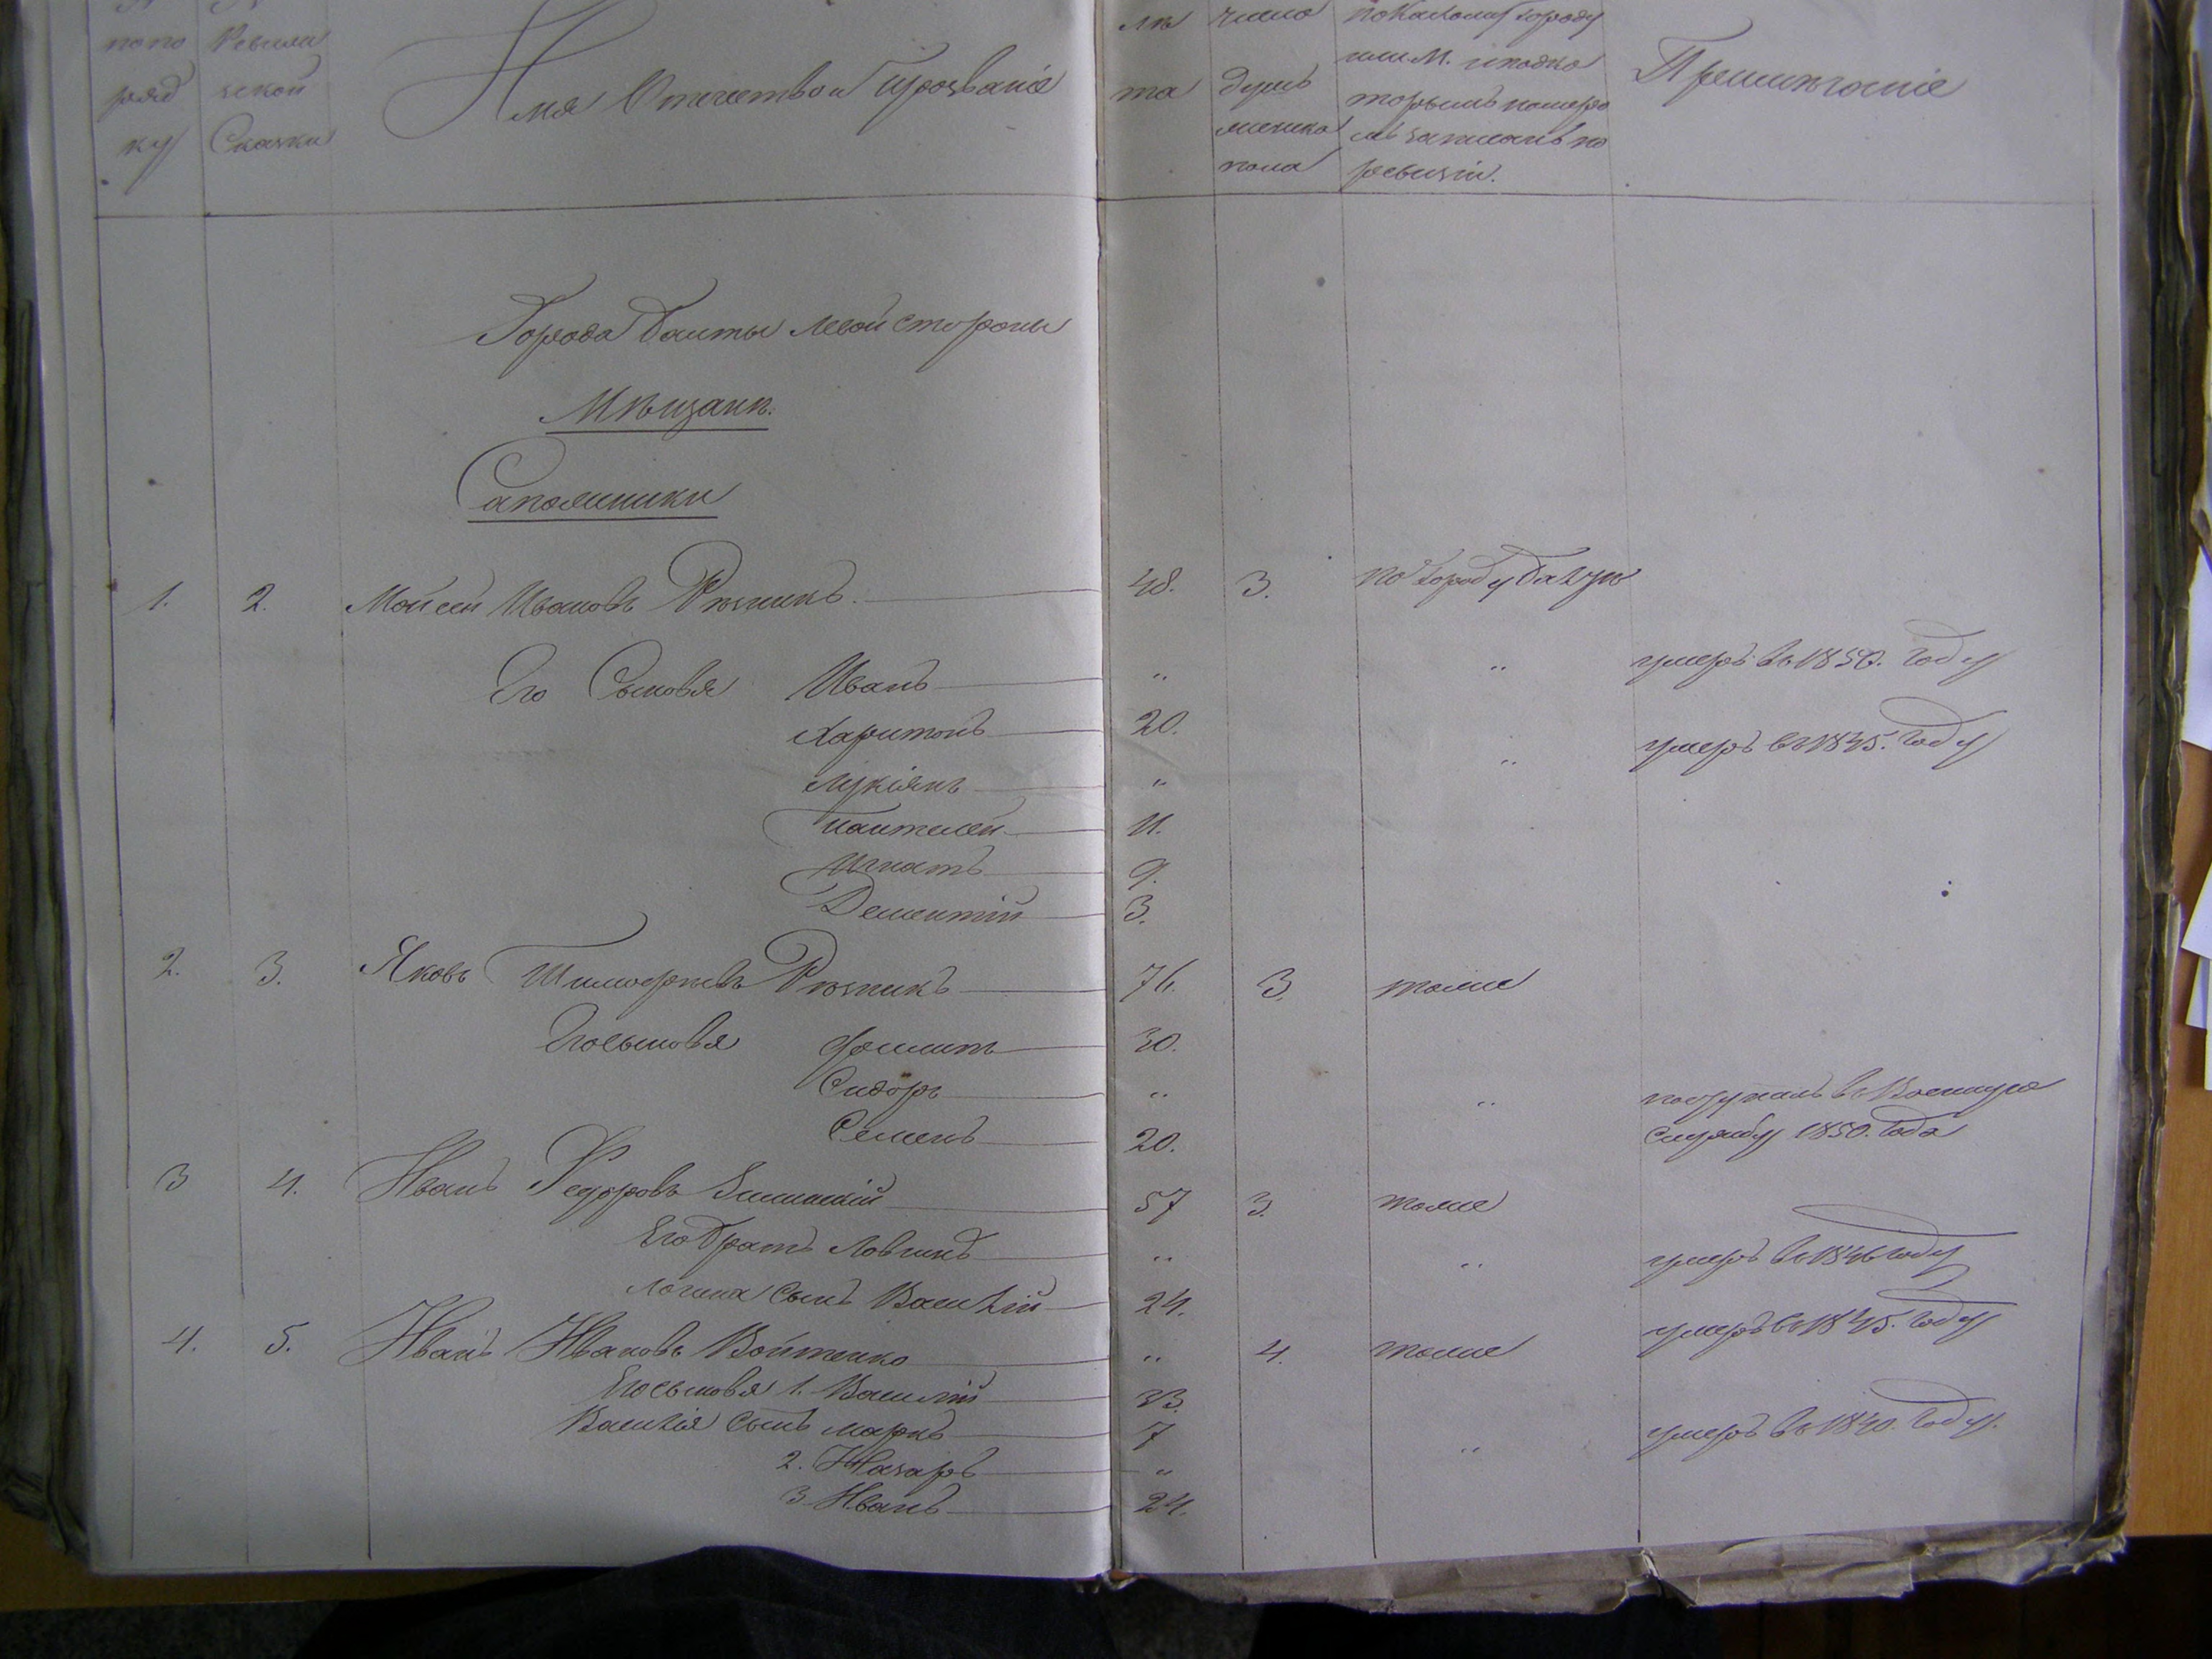 № № лѣ число по какому городу
по по Ревизи Имя Отчество и Прозваніе та душъ или М. и подко Примѣчаніе
ряд ской мужска торымъ номеро
ку Сказки пола мъ записанъ по
ревизіи.
Города Балты левой стороны
Мѣщанъ.
Сапожники
1. 2. Мойсей Ивановъ Рѣзникъ. 48. 3. по городу Балтѣ
Его Сыновья Иванъ " " умеръ въ 1850. году
Харитонъ 20.
Лукіянъ " " умеръ въ 1845. году
Пантелей 11.
Игнатъ 9.
Дементій 3.
2. 3. Яковъ Тимофѣевъ Рѣзникъ 76. 3. тоже
Его сыновья 30.
Сидоръ " " поступилъ въ Военную
Семенъ 20. Службу 1850. года
3 4. Иванъ Федоровъ 57 3. тоже
Его братъ Логинъ " " умеръ въ 1846 году
Логина сынъ Василій 24.
4. 5. Иванъ Ивановъ Войтенко " 4. тоже умеръ въ 1845. году
Его сыновья 1. Василій 33.
Василія сынъ Марко 7
2. Назаръ " " умеръ въ 1840. году.
3 Иванъ 24.